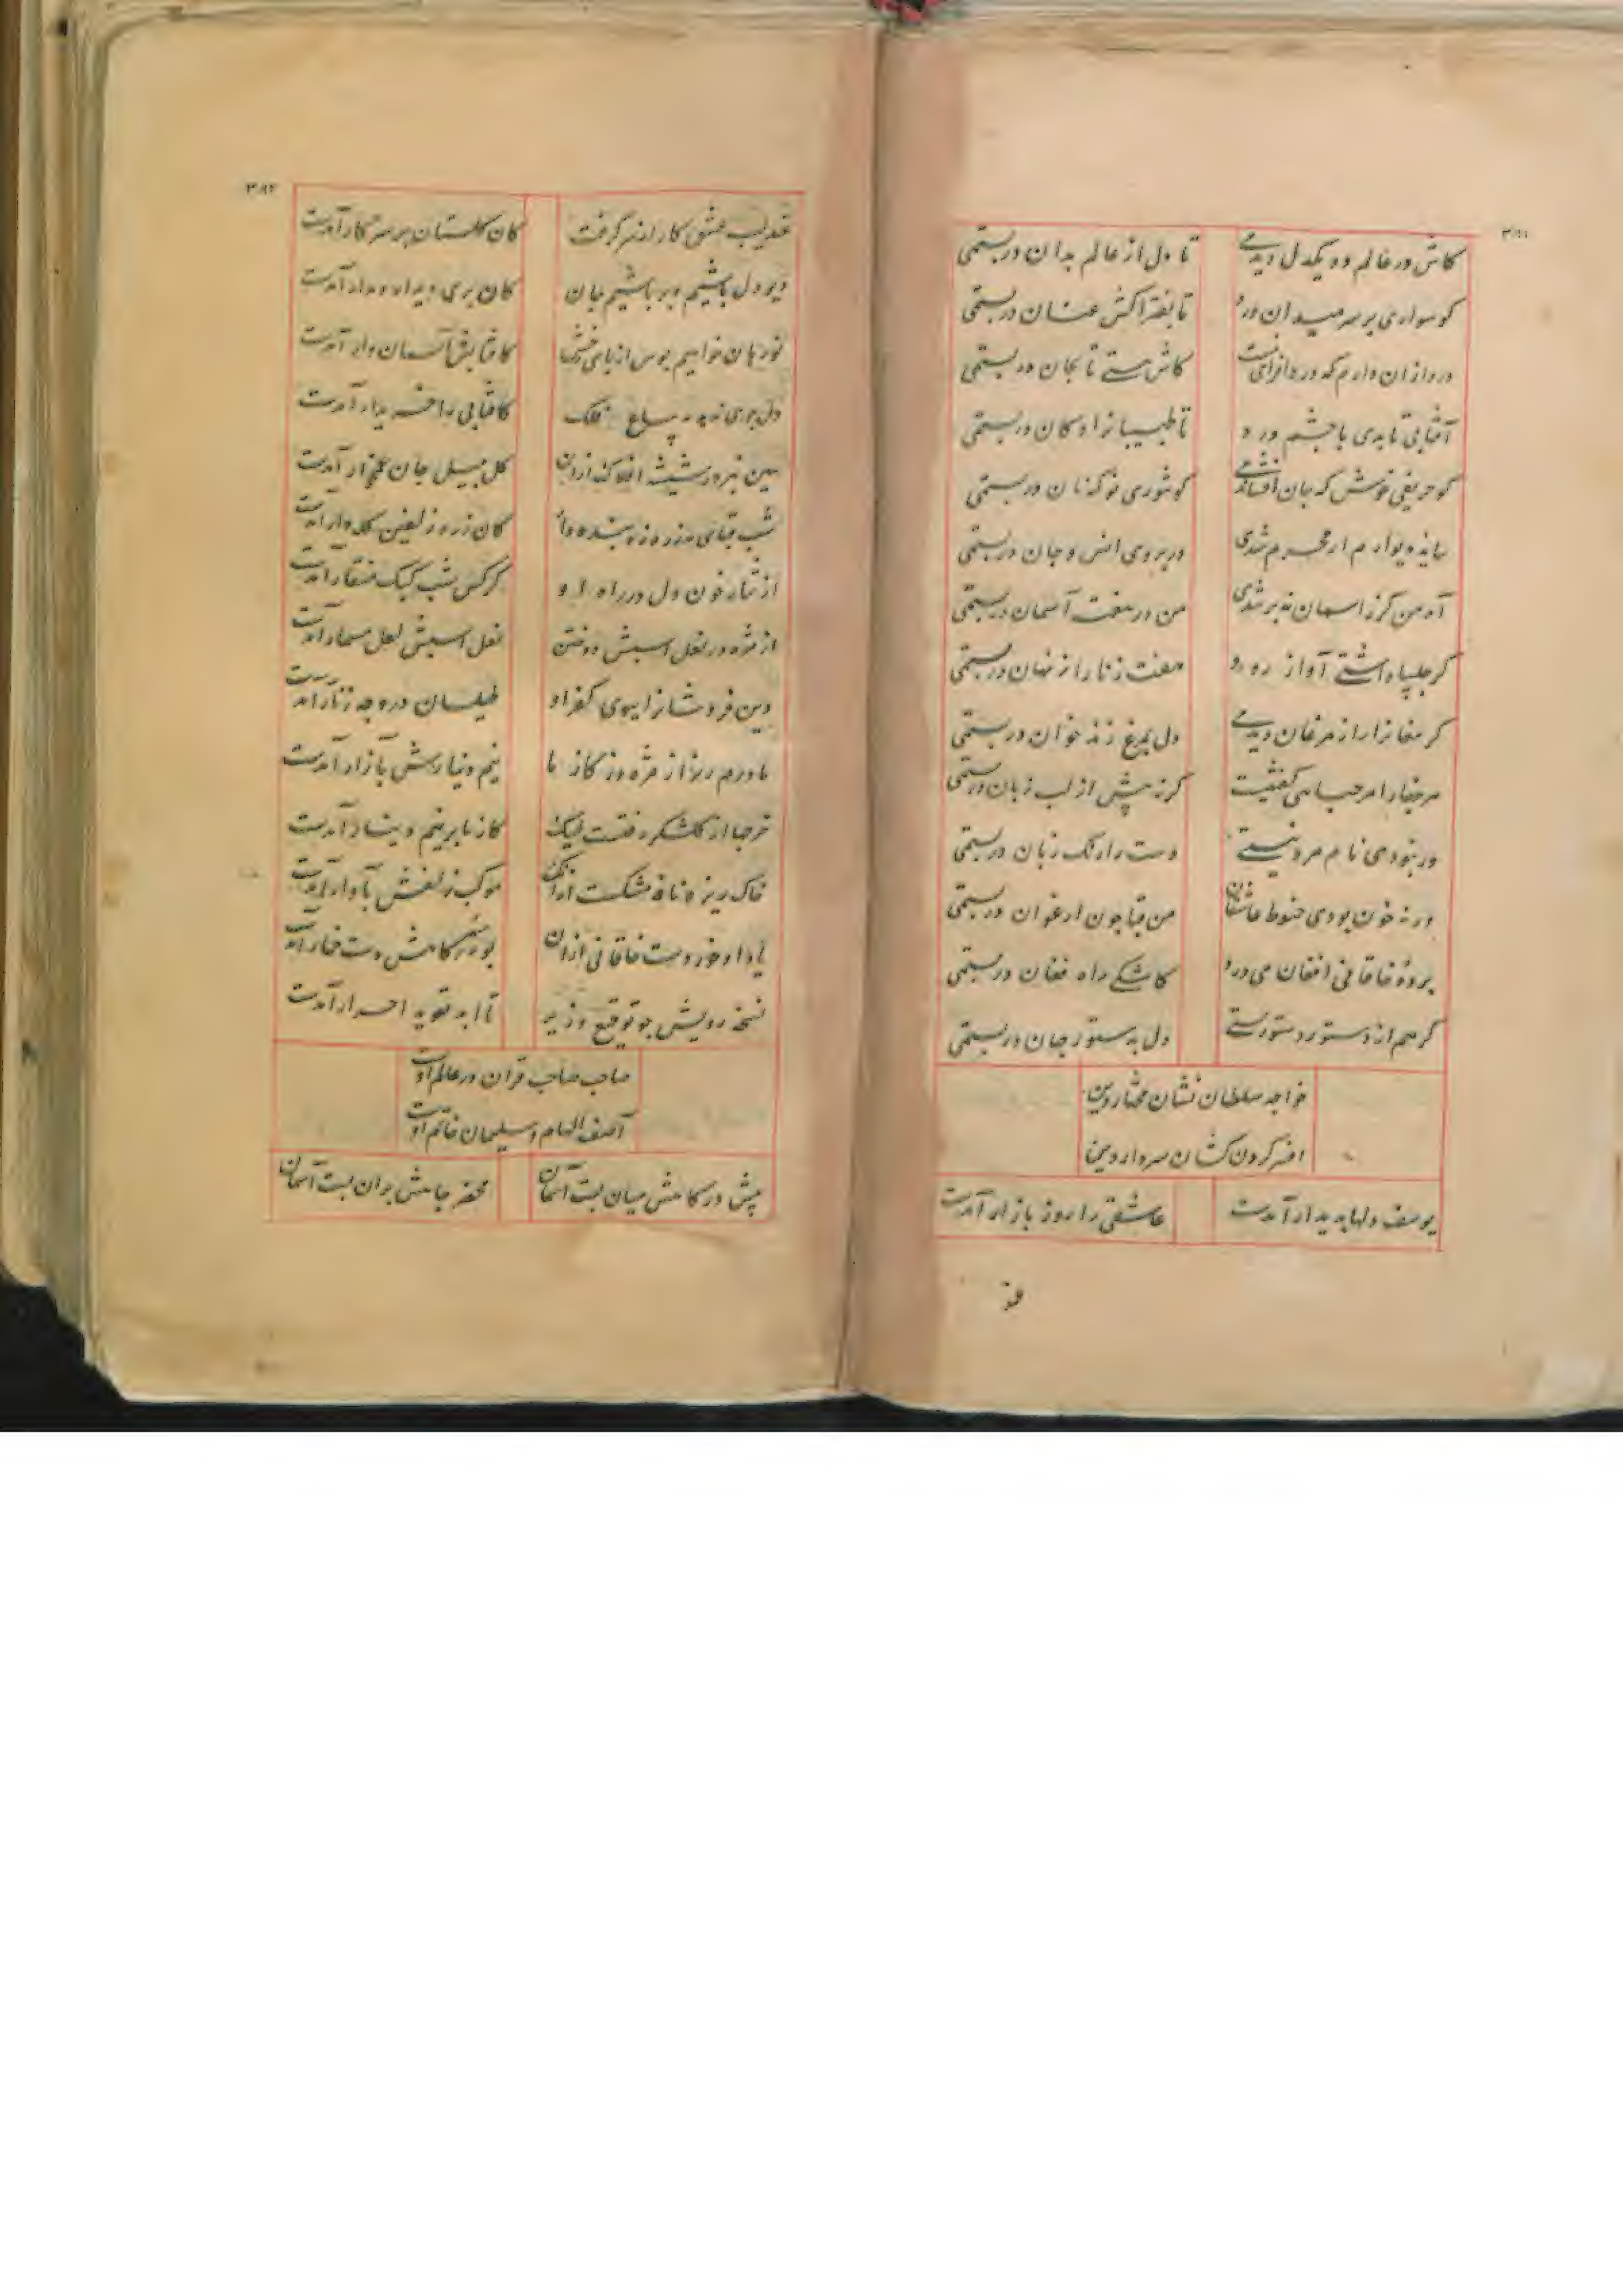 ۳۸۱
کاش در عالم دو یکدل دیدمی تا دل از عالم بدان دربستمی
کو سواری بر سر میدان درد تا بفتراکش عنان دربستمی
درد ازان دارم که درد افزای نیست کاش هستی تا بجان دربستمی
آفتابی تا بدی با چشم درد تا طبیبانرا دکان دربستمی
کو حریفی خوش که جان افشاندمی کو تنوری نو که نان دربستمی
سایه دیوارم ار محرم شدی در بروی انس و جان دربستمی
آه من گر ز اسمان نه بر شدی من در هفت آسمان دربستمی
گر چلیپا داشتی آواز درد هفت زنار از نهان دربستمی
گر مغانرا راز مرغان دیدمی دل بمرغ زند خوان دربستمی
مر جفا را مرحبا می گفتیت گر نه پیش از لب زبان دربستمی
ور نبودی نام مرد نیستی دست را رنگ زبان دربستمی
ور نه خون بودی حنوط عاشقان من قبا چون ارغوان دربستمی
پرده خاقانی افغان می درد کاشکی راه فغان دربستمی
گر هم از دستور دستوریستی دل بدستور جهان دربستمی
خواجه سلطان نشان مختار دین
افسر گردن کشان سردار دین
یوسف دلها پدیدار آمدست عاشقی را روز بازار آمدست
۳۸۲
عندلیب عشق کار از سر گرفت کان گلستان بر سر کار آمدست
دیو دل باشیم و بر باشیم جان کان پری دیدار دیدار آمدست
نورهان خواهیم بوس از پای کافتابش آسمان وار آمدست
کافتابی را خریدار آمدست
بین نیم در شیشه افلاک ازان گل بسیل جان گرفتار آمدست
شب قبای مه زره زد بنده وار کان زره زلفین کله دار آمدست
از نثار خون دل در راه او کرکس شب کبک منقار آمدست
از مژه در نعل اسبش دوختن نعل اسبش لعل مسمار آمدست
دین فروشانرا بسوی کفر او طیلسان در وجه زنار آمدست
ما درم ریز از مژه وز گاز ما نیم دینارش بآزار آمدست
خرجها از گلشکر رفتست لیک گاز ما بر نیم دینار آمدست
خاک ریزه نافه مشکست ازانک موکب زلفش بآوار آمدست
باد او خورد دست خاقانی ازان بوسه گاهش دست خمار آمدست
نسخه رویش چو توقیع وزیر تا ابد تعوید احرار آمدست
صاحب صاحب قران در عالم اوست
آصف الهام و سلیمان خاتم اوست
پیش درگاهش میان بست آسمان محضر جاهش بران بست آسمان